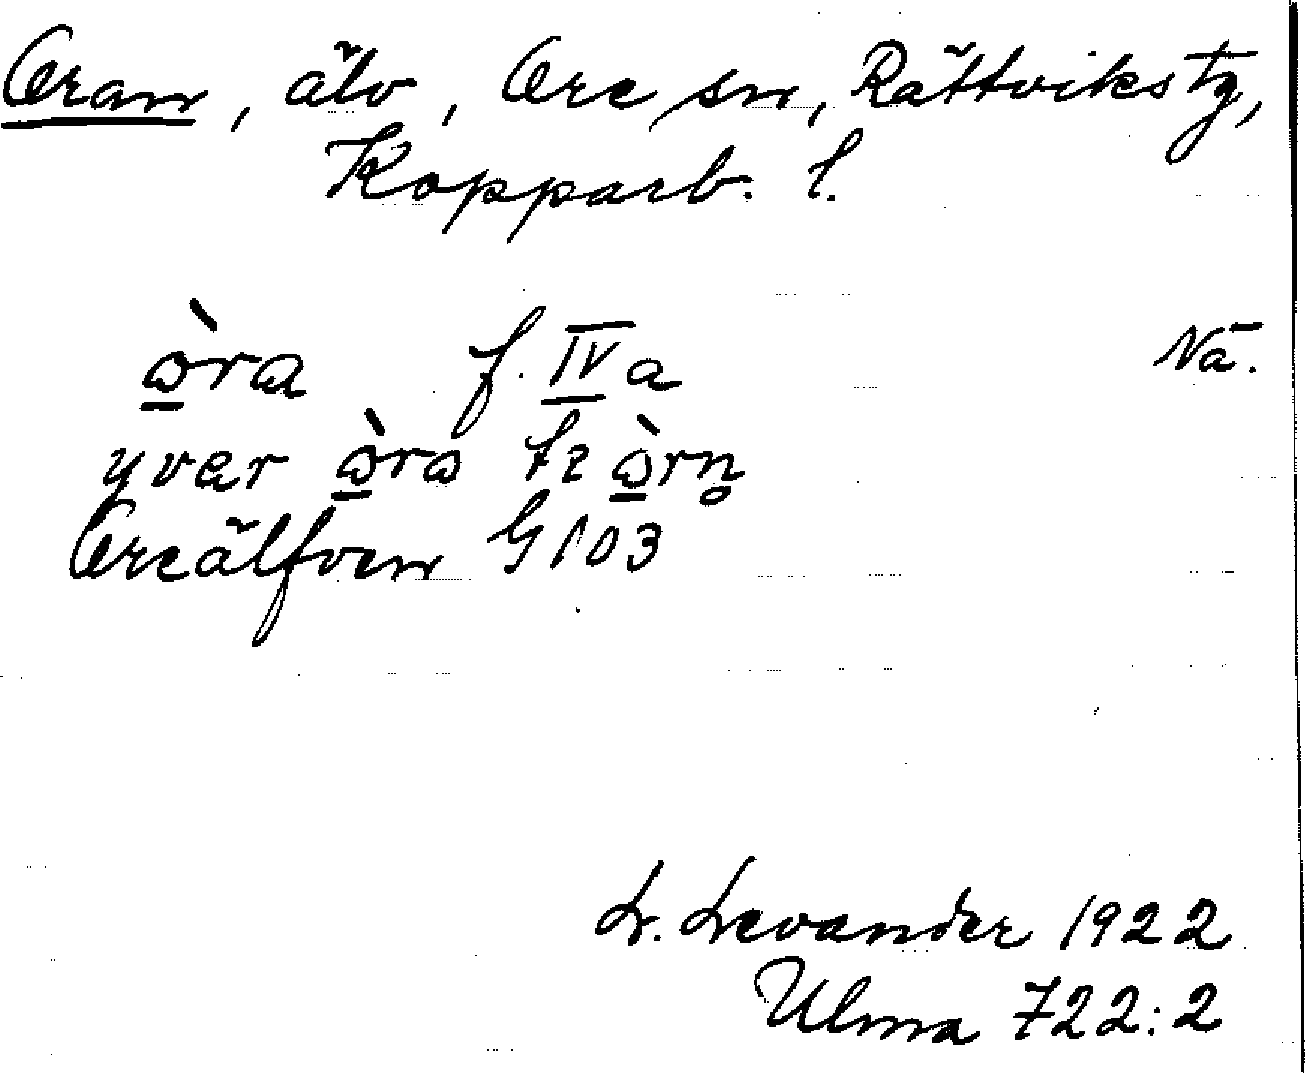 Oran, älv, Ore sn, Rättviks tg,
Kopparb. l.
ɷ̱̀ra f. IV a Nä.
yvər ɷ̱̀rɷ tɪ ɷ̱̀rn̥
Oreälfven G 103
L. Levander 1922
Ulma 722:2